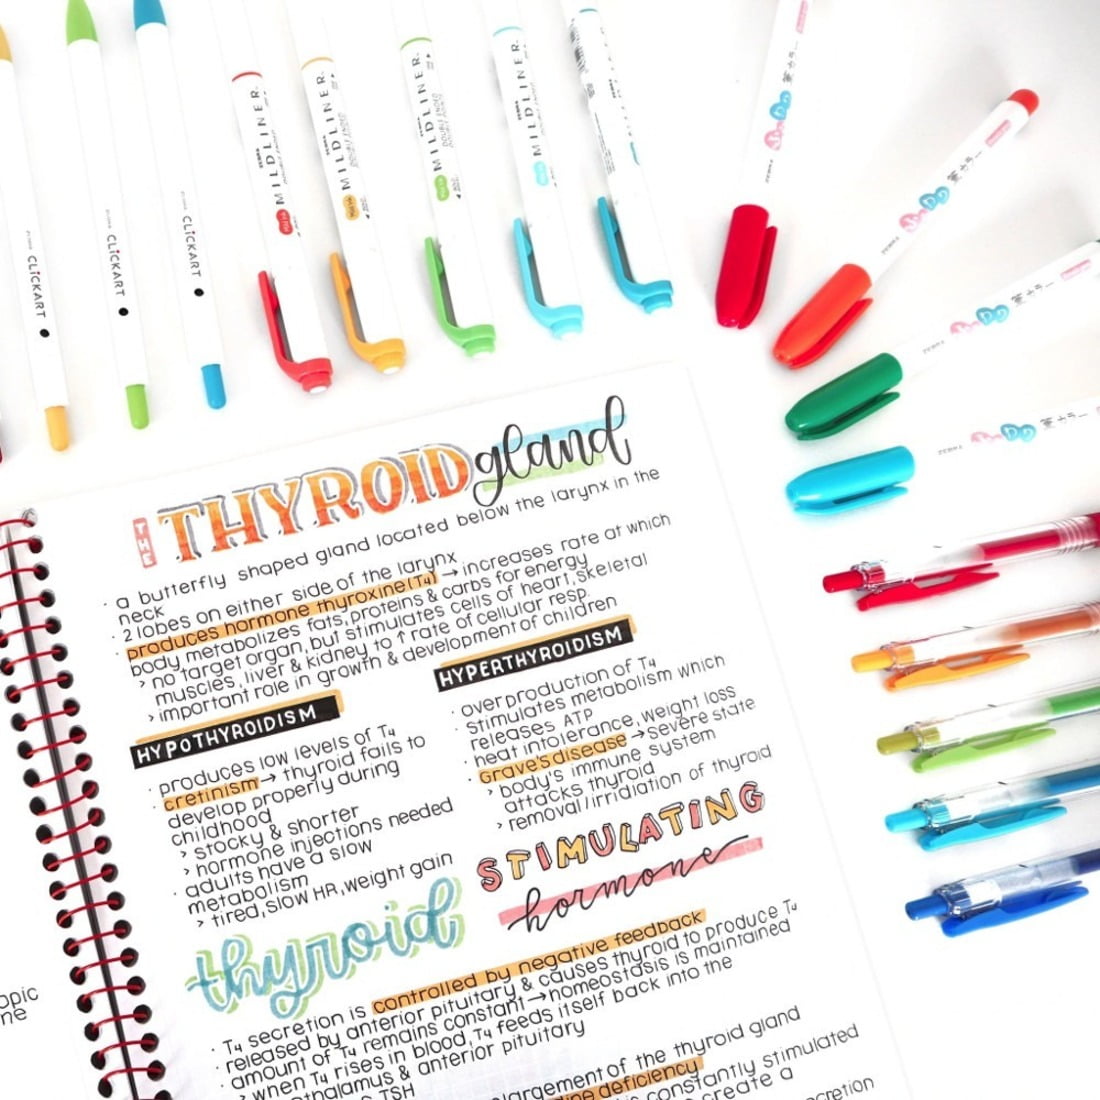 CLiCKART
CLiCKART
CLiCKART
ZEBRA MILDLINER
DOUBLE ENDED
ZEBRA MILDLINER
DOUBLE ENDED
ZEBRA MILDLINER
DOUBLE ENDED
ZEBRA MILDLINER
DOUBLE ENDED
ZEBRA
筆カラー
ZEBRA
筆カラー
ZEBRA
筆カラー
ZEBRA
筆カラー
THE THYROID gland
· a butterfly shaped gland located below the larynx in the
neck
· 2 lobes on either side of the larynx
· produces hormone thyroxine (T4) → increases rate at which
body metabolizes fats, proteins & carbs for energy
> no target organ, but stimulates cells of heart, skeletal
muscles, liver & kidney to ↑ rate of cellular resp.
> important role in growth & development of children
HYPOTHYROIDISM
· produces low levels of T4
· cretinism → thyroid fails to
develop properly during
childhood
> stocky & shorter
> hormone injections needed
· adults have a slow
metabolism
> tired, slow HR, weight gain
HYPERTHYROIDISM
· overproduction of T4
stimulates metabolism which
releases ATP
· heat intolerance, weight loss
· Grave's disease → severe state
> body's immune system
attacks thyroid
> removal/irridiation of thyroid
thyroid STIMULATING
hormone
· T4 secretion is controlled by negative feedback
· released by anterior pituitary & causes thyroid to produce T4
· amount of T4 remains constant → homeostasis is maintained
> when T4 rises in blood, T4 feeds itself back into the
thalamus & anterior pituitary
TSH
largement of the thyroid gland
ine deficiency
s constantly stimulated
create a
secretion
opic
ne